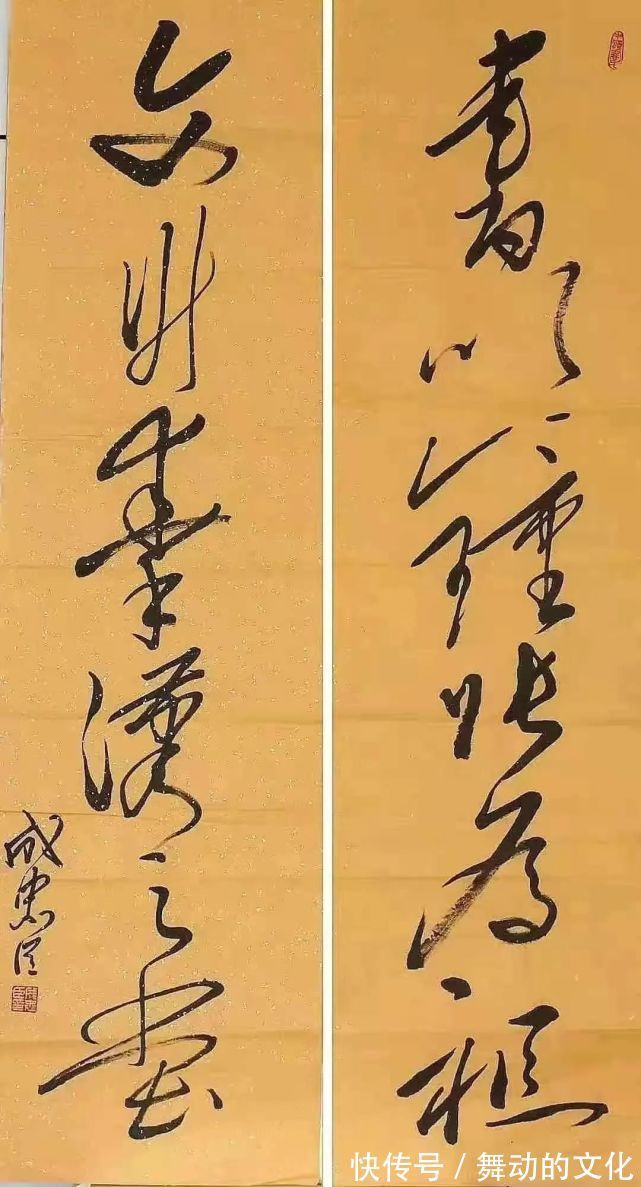 書以鍾張為
文升秦漢之堂
成忠
快传号 / 舞动的文化